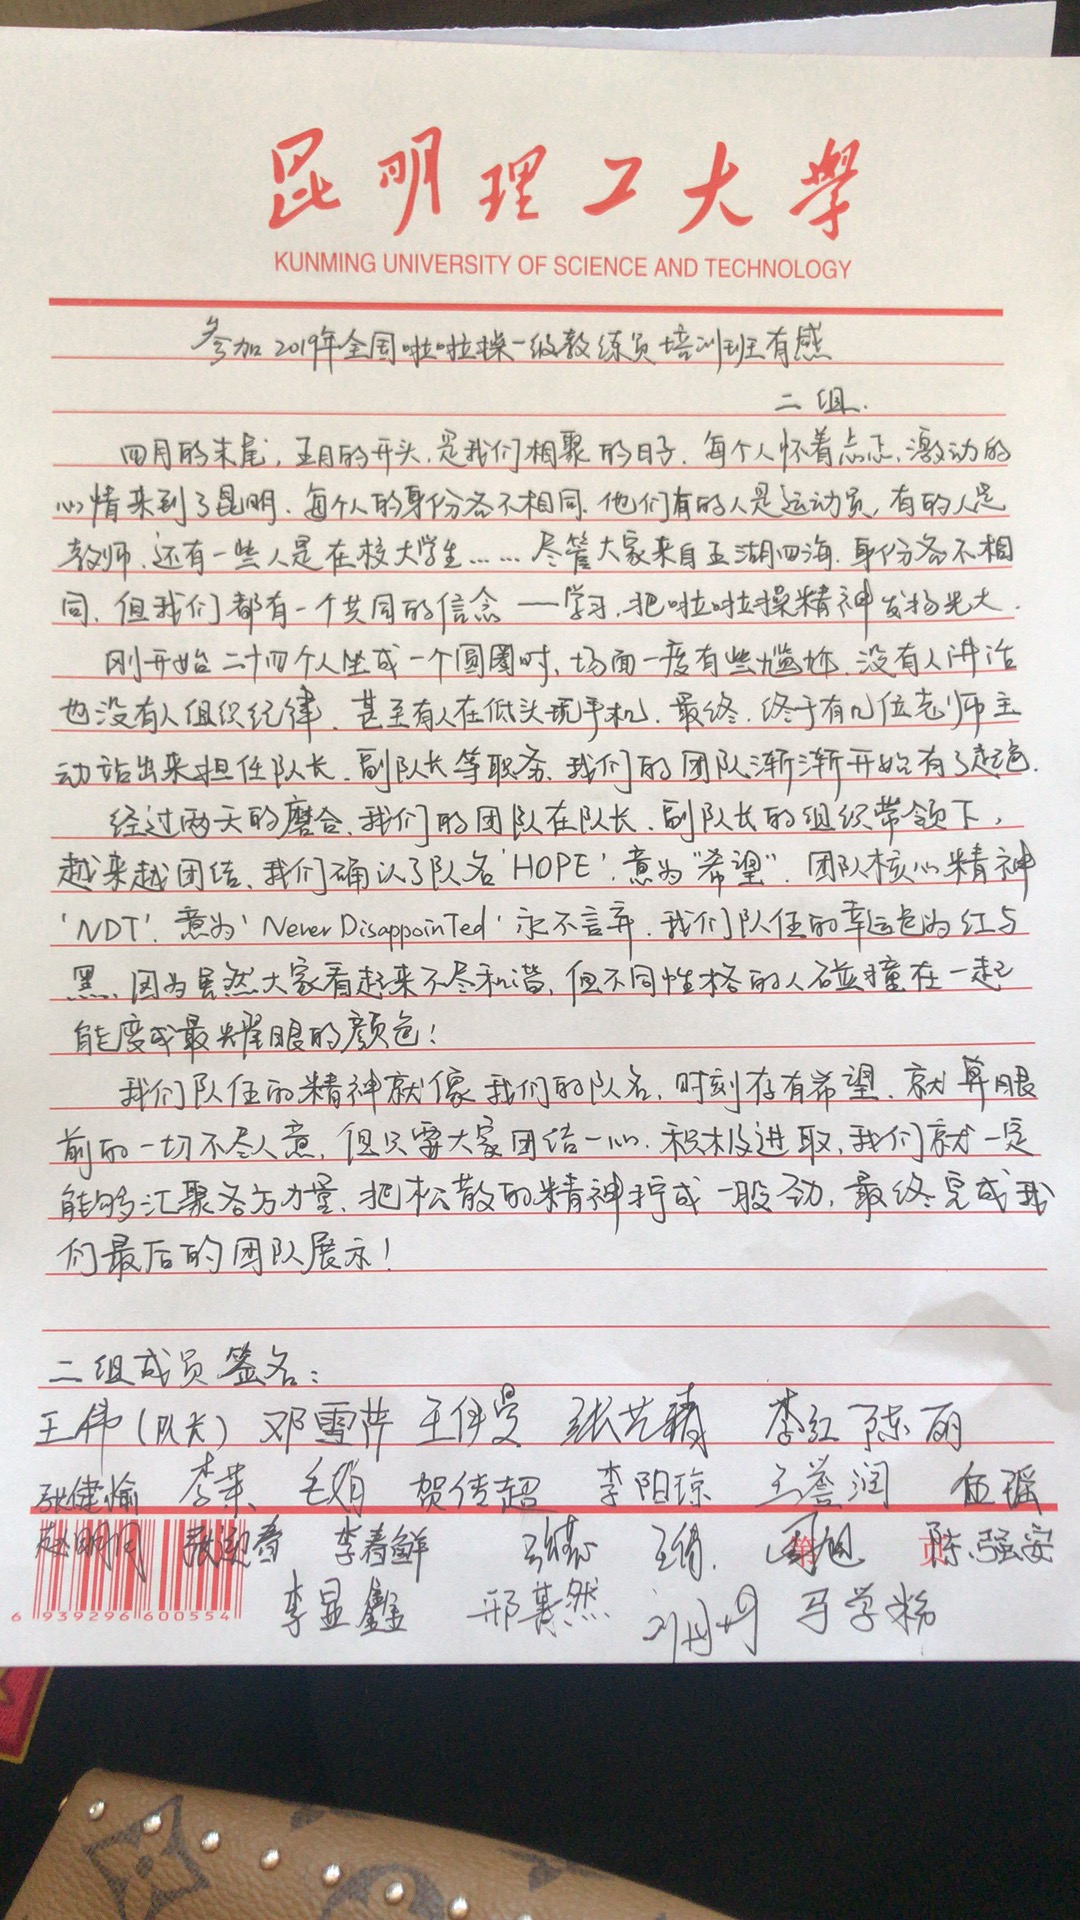 昆明理工大学
KUNMING UNIVERSITY OF SCIENCE AND TECHNOLOGY
参加2019年全国啦啦操一级教练员培训班有感
二组.
四月的末尾,五月的开头,是我们相聚的日子.每个人怀着忐忑,激动的
心情来到了昆明.每个人的身份各不相同.他们有的人是运动员,有的人是
教师,还有一些人是在校大学生……尽管大家来自五湖四海.身份各不相
同,但我们都有一个共同的信念——学习,把啦啦操精神发扬光大.
刚开始二十四个人坐成一个圆圈时,场面一度有些尴尬.没有人讲话
也没有人组织纪律,甚至有人在低头玩手机.最终,终于有几位老师主
动站出来担任队长、副队长等职务,我们的团队渐渐开始有了起色.
经过两天的磨合,我们的团队在队长、副队长的组织带领下,
越来越团结,我们确认了队名'HOPE',意为"希望".团队核心精神
'NDT',意为'Never Disappointed'永不言弃.我们队伍的幸运色为红与
黑,因为虽然大家看起来不尽和谐,但不同性格的人碰撞在一起
能变成最耀眼的颜色!
我们队伍的精神就像我们的队名,时刻存有希望.就算眼
前的一切不尽人意,但只要大家团结一心.积极进取,我们就一定
能够汇聚各方力量,把松散的精神拧成一股劲,最终完成我
们最后的团队展示!
二组成员签名:
王伟(队长) 邓雪萍 王伊曼 张艺精 李红 陈丽
张健愉 李荣 毛娟 贺传超 李阳琼 王誉润 伍瑶
赵明月 李春鲜 王倩. 周旭 第 页 陈强安
6 939296 600554
李显鑫 邢慕然 刘丹丹 马学粉